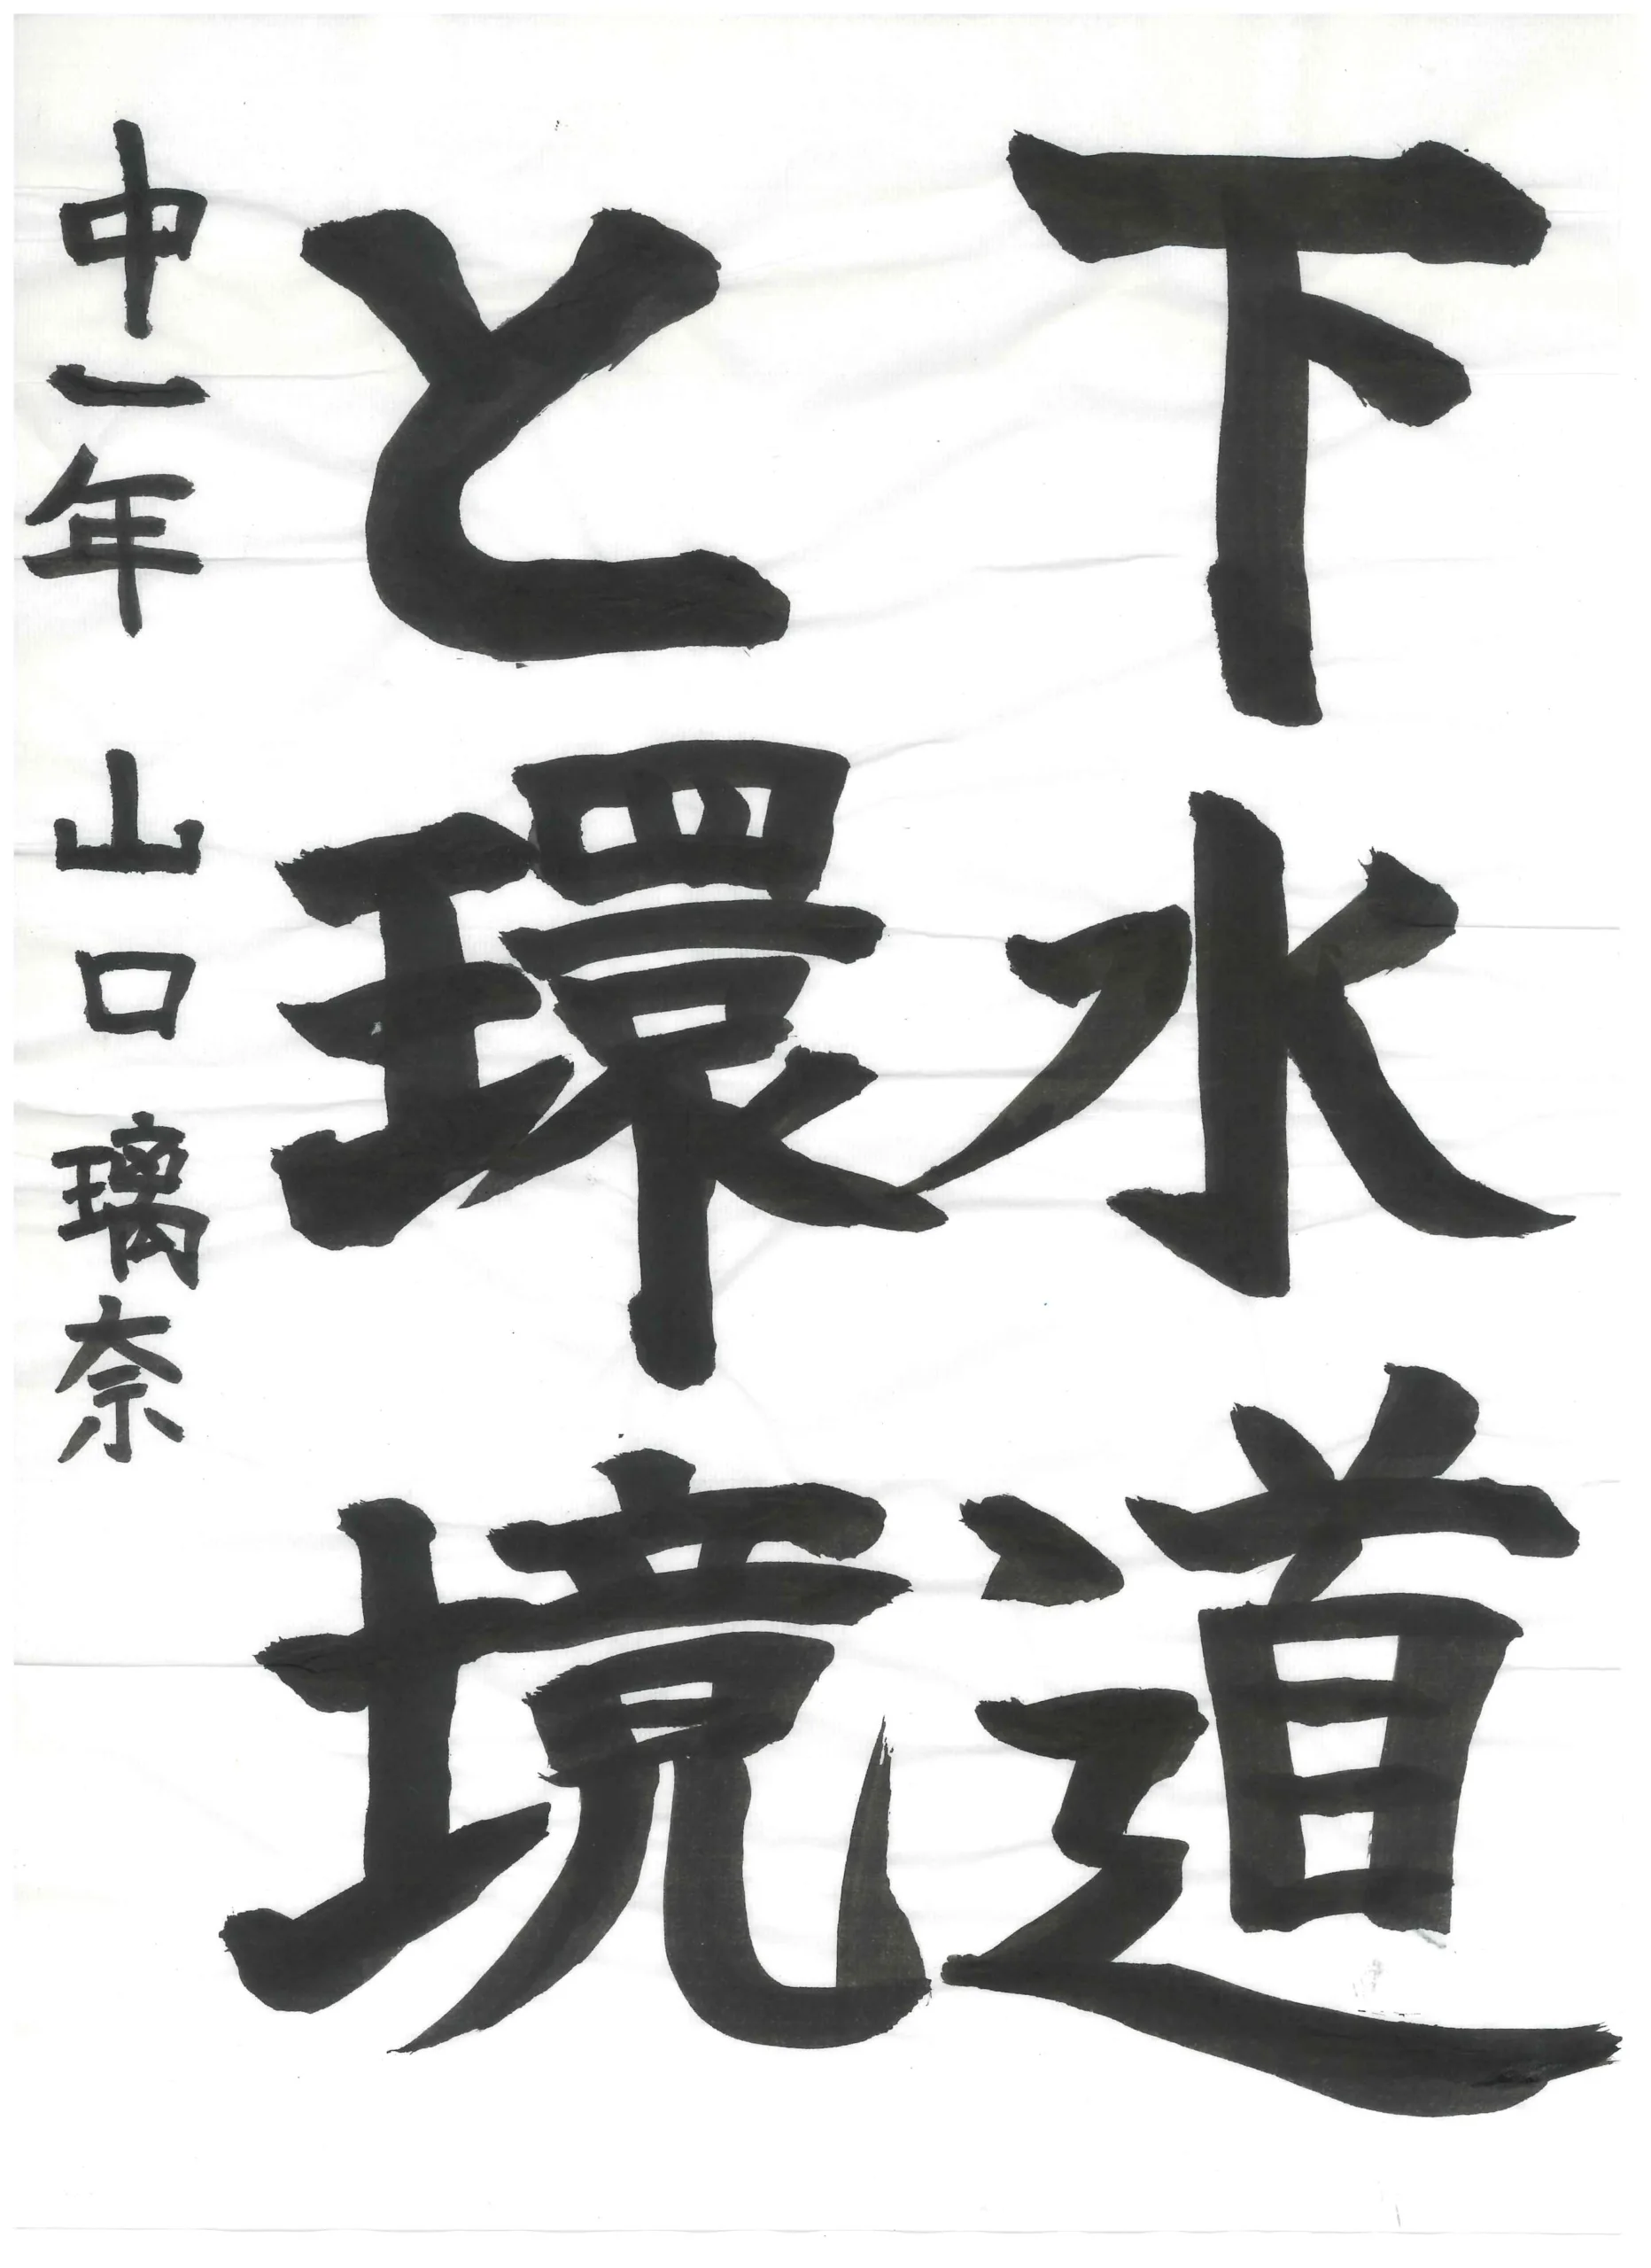 下水道
と環境
中一年 山口 璃奈